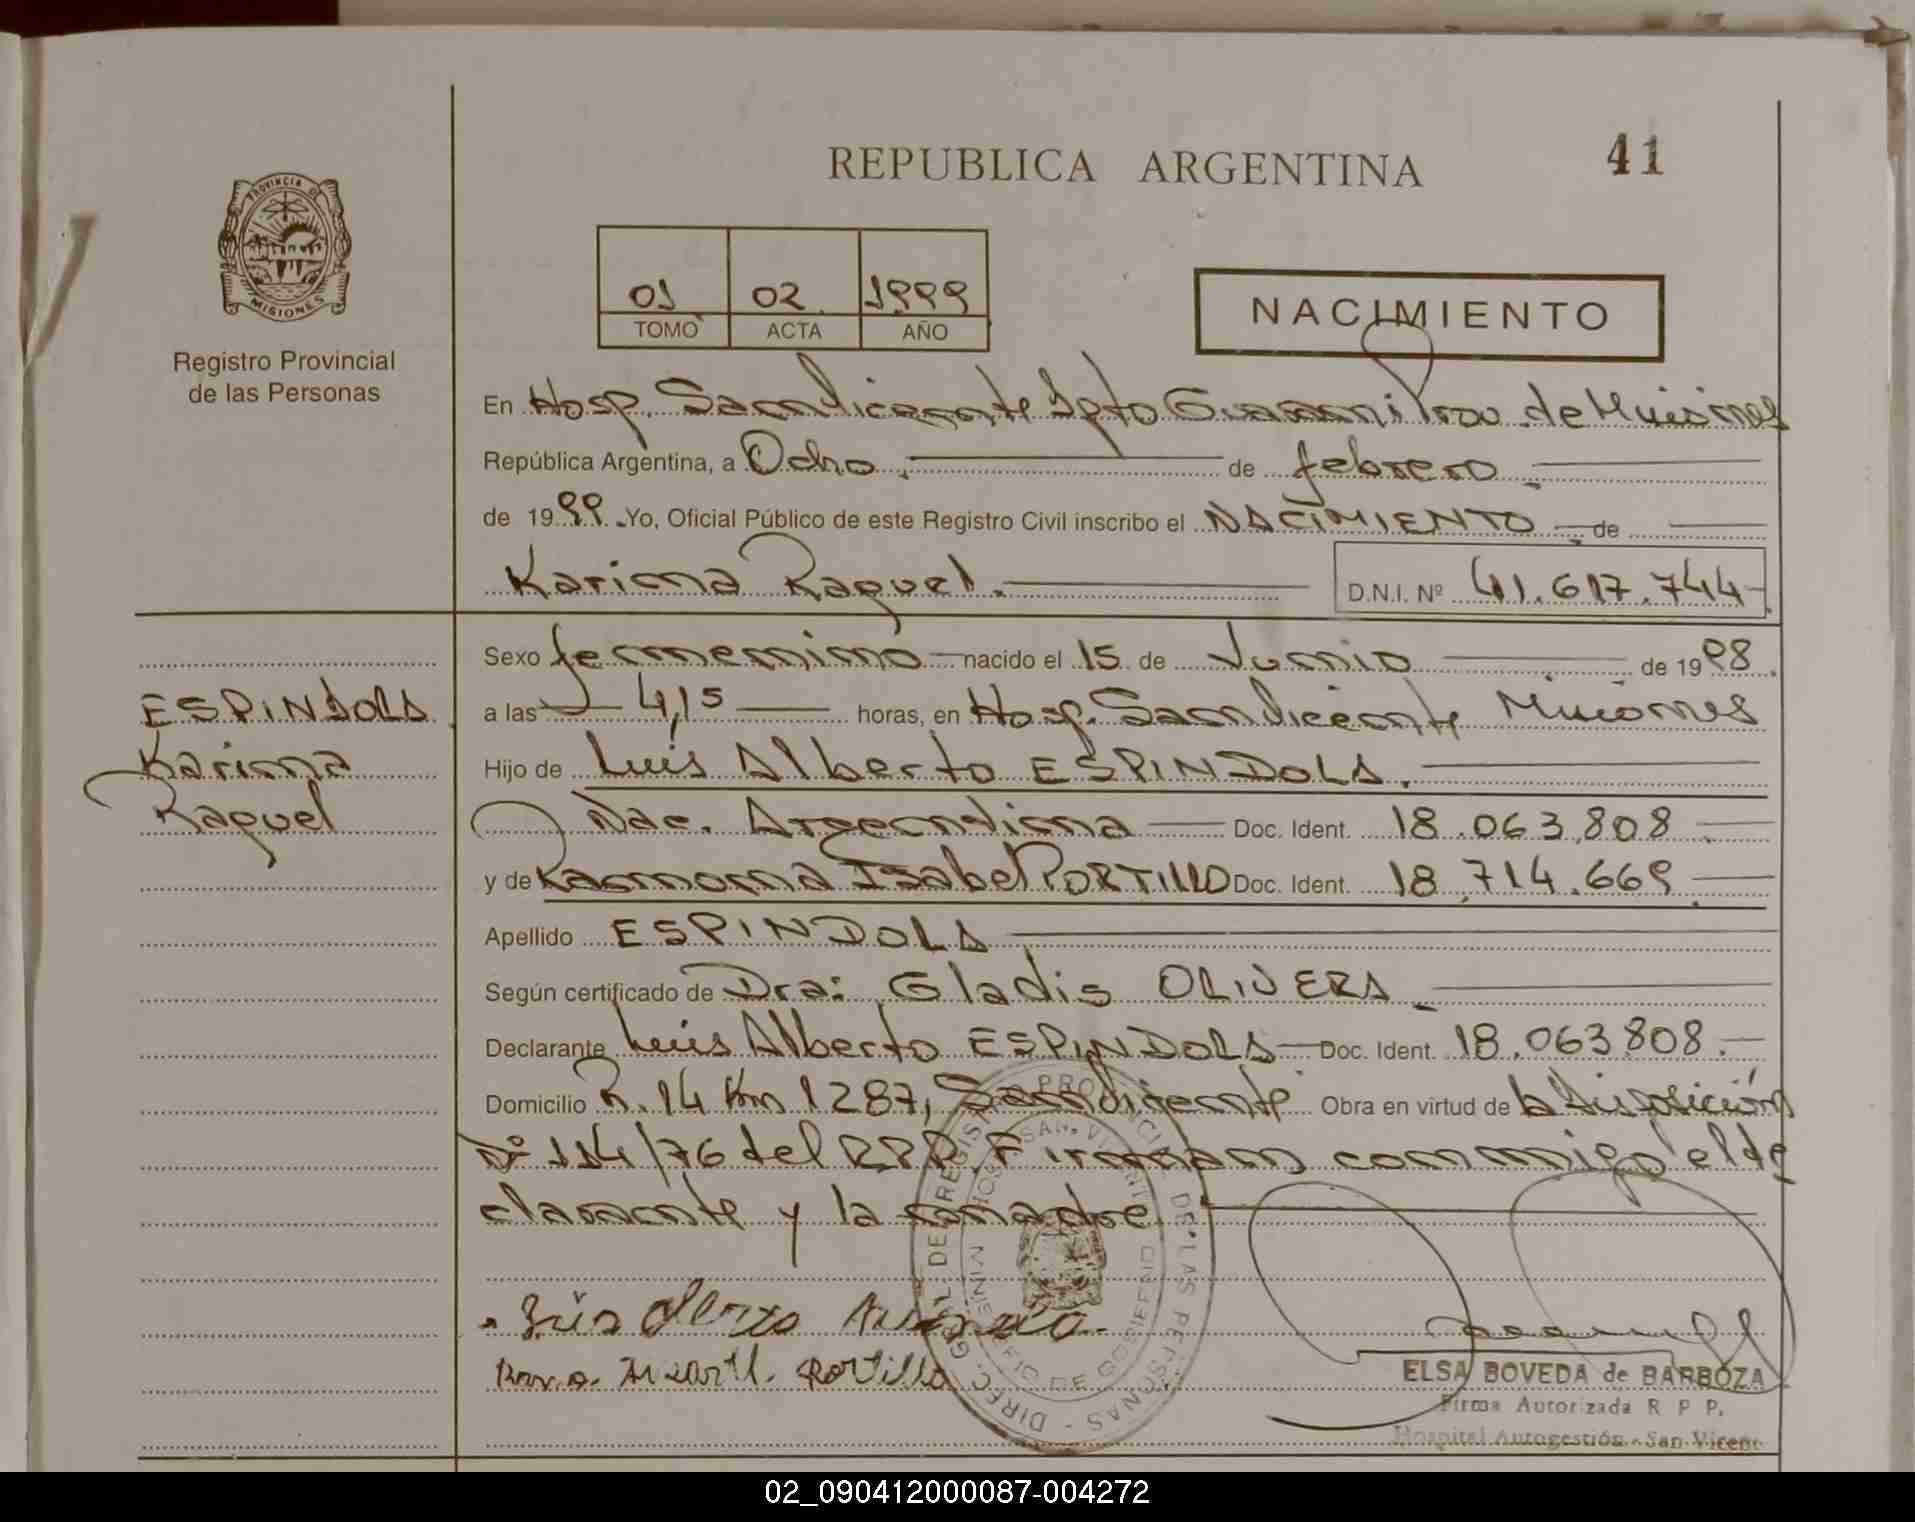 REPUBLICA ARGENTINA
41
PROVINCIA DE
MISIONES
Registro Provincial
de las Personas
01 02 1999
TOMO ACTA AÑO
NACIMIENTO
En Hosp. San Vicente Dpto Guarani Prov. de Misiones
República Argentina, a Ocho. de febrero.
de 1999. Yo, Oficial Público de este Registro Civil inscribo el NACIMIENTO de
Karina Raquel. D.N.I. Nº 41.617.744
ESPINDOLA
Karina
Raquel
Sexo femenino nacido el 15 de Junio de 1998.
a las 4,15 horas, en Hosp. San Vicente Misiones
Hijo de Luis Alberto ESPINDOLA.
Nac. Argentina Doc. Ident. 18.063.808
y de Ramona Isabel PORTILLO Doc. Ident. 18.714.669
Apellido ESPINDOLA
Según certificado de Dra: Gladis OLIVERA
Declarante Luis Alberto ESPINDOLA Doc. Ident. 18.063808.
Domicilio R. 14 Km 1287, San Vicente Obra en virtud de la disposición
Nº 114/76 del RPP. Firman conmigo el de
clarante y la madre
Portillo
DIREC. GRAL. DE REGISTRO PROVINCIAL DE LAS PERSONAS
HOSP. SAN VICENTE
ELSA BOVEDA de BARBOZA
Firma Autorizada R P P.
Hospital Autogestión - San Vicent
02_090412000087-004272